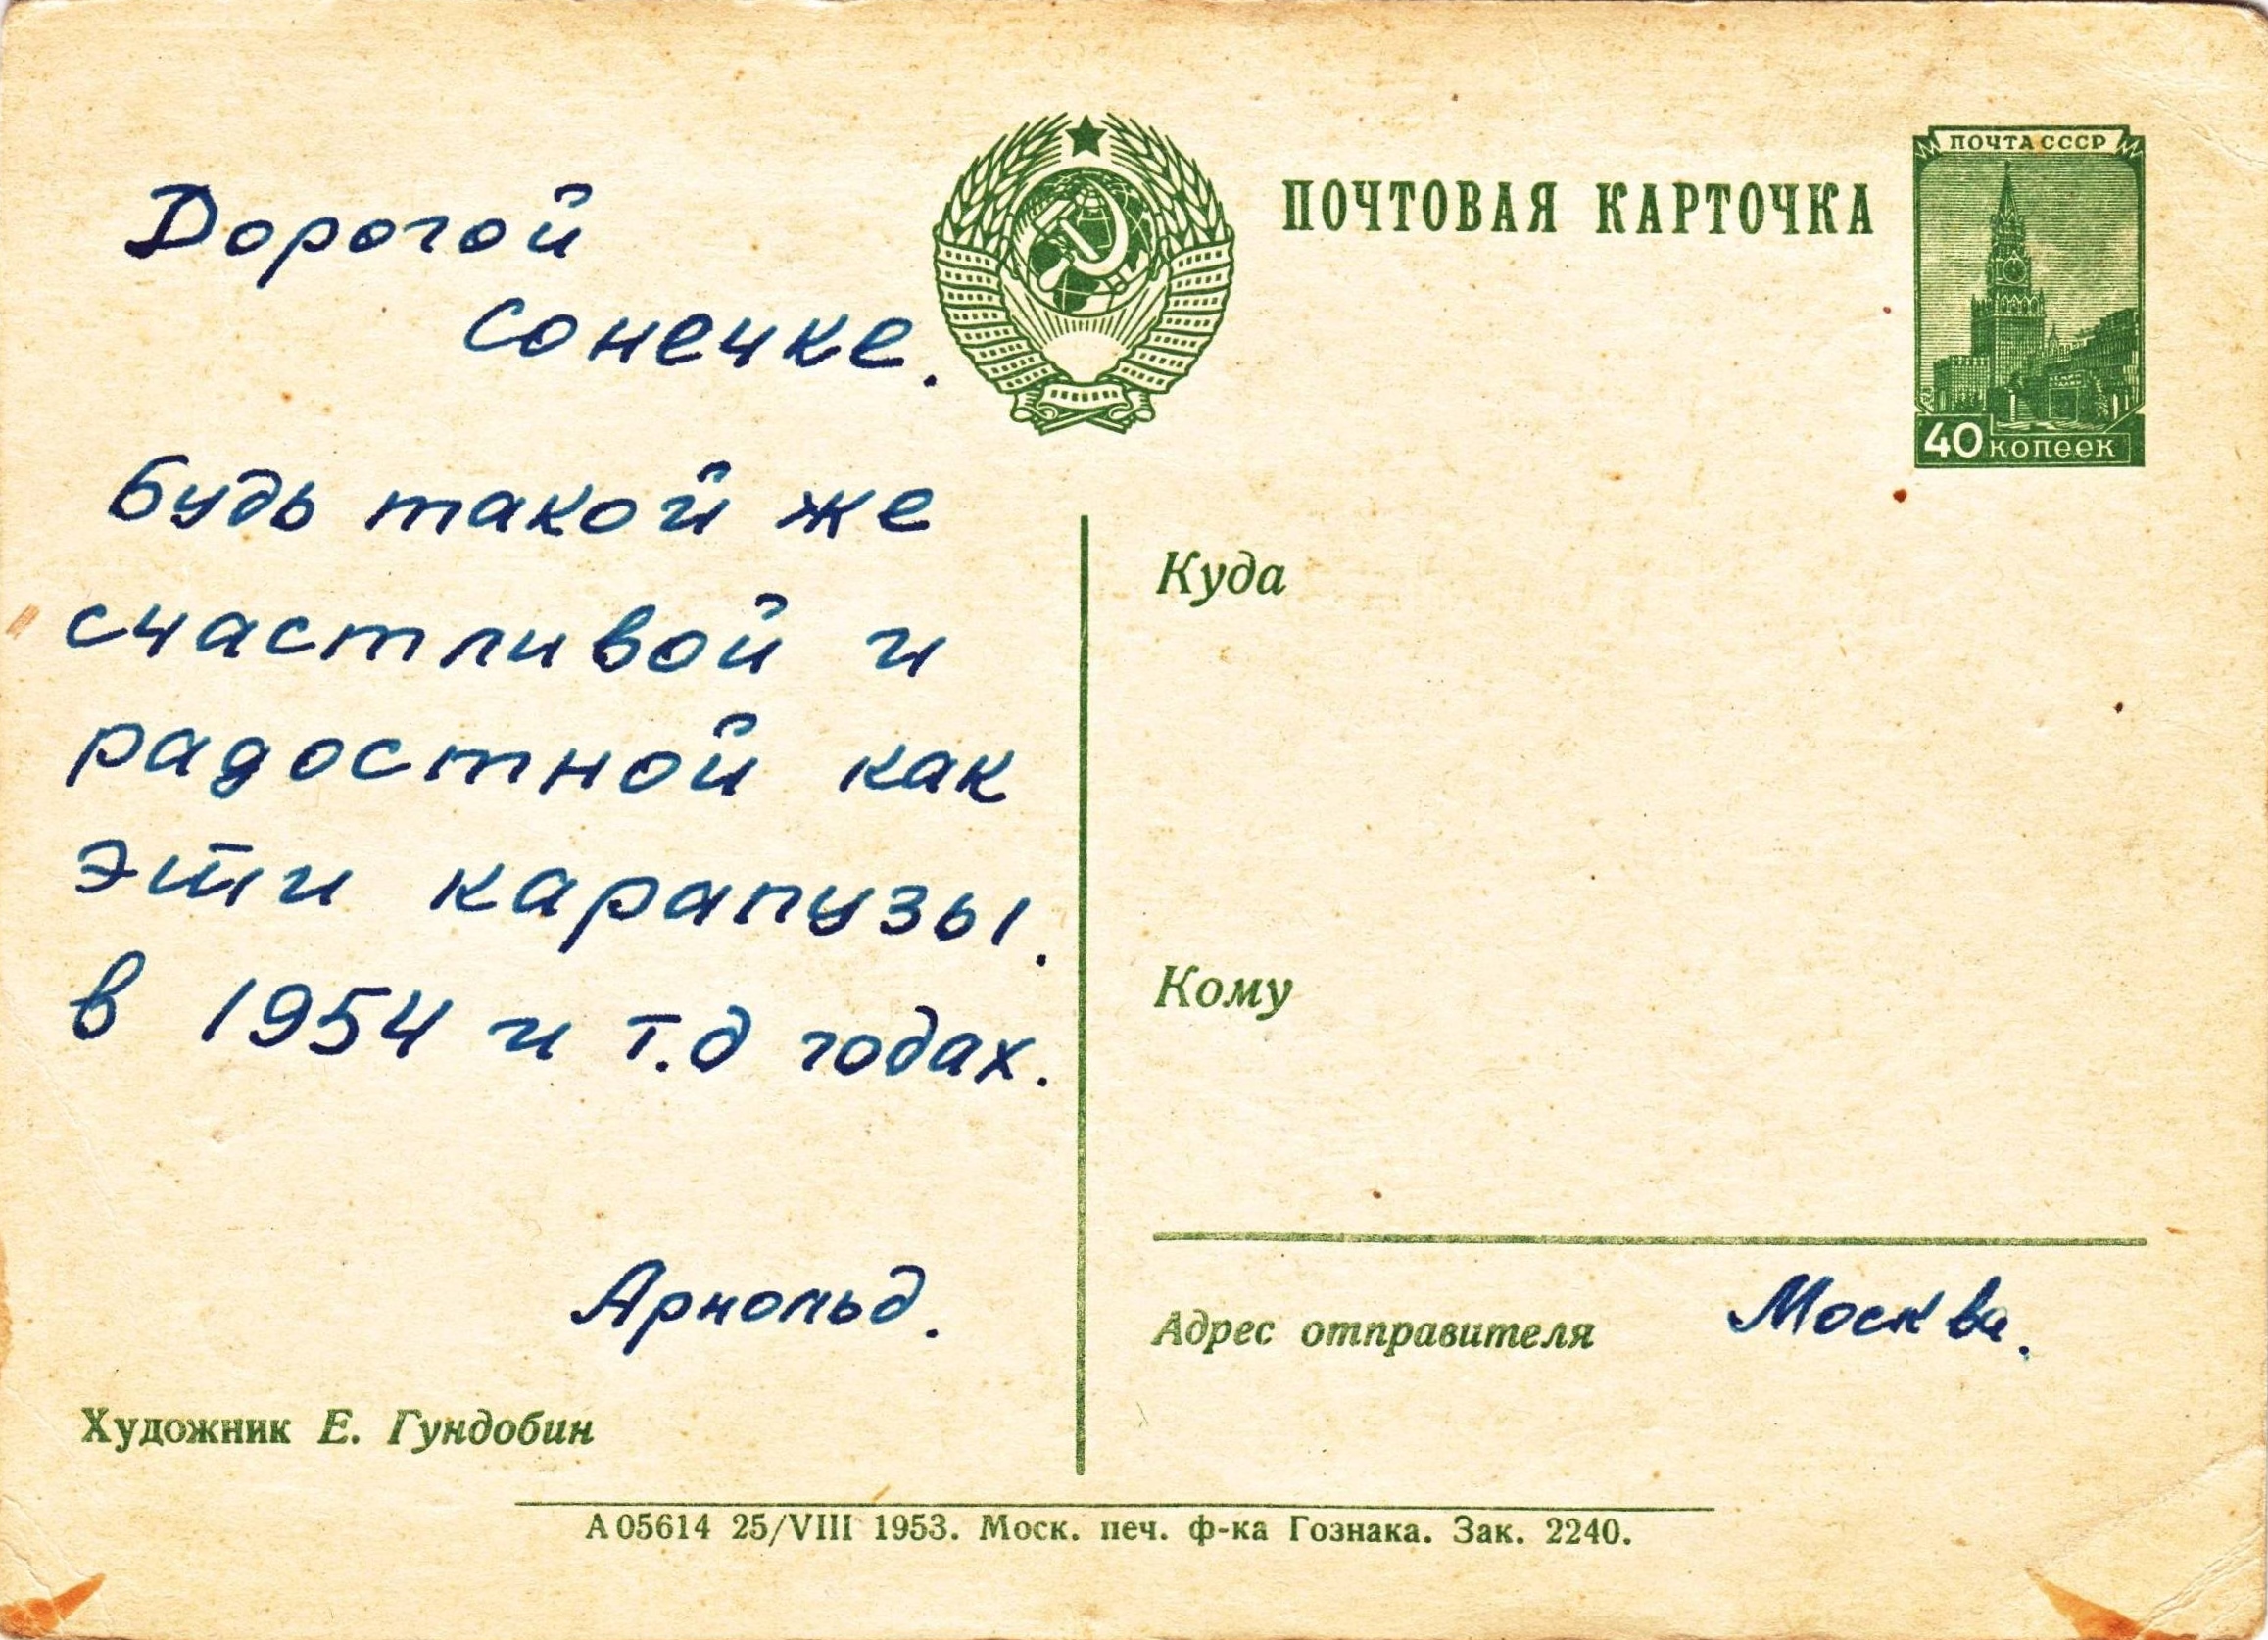 ПОЧТА СССР
ПОЧТОВАЯ КАРТОЧКА
40 КОПЕЕК
Дорогой
Сонечке.
Будь такой же
счастливой и
радостной как
эти карапузы.
в 1954 и т.д годах.
Арнольд.
Художник Е. Гундобин
Куда
Кому
Адрес отправителя Москва.
А 05614 25/VIII 1953. Моск. печ. ф-ка Гознака. Зак. 2240.